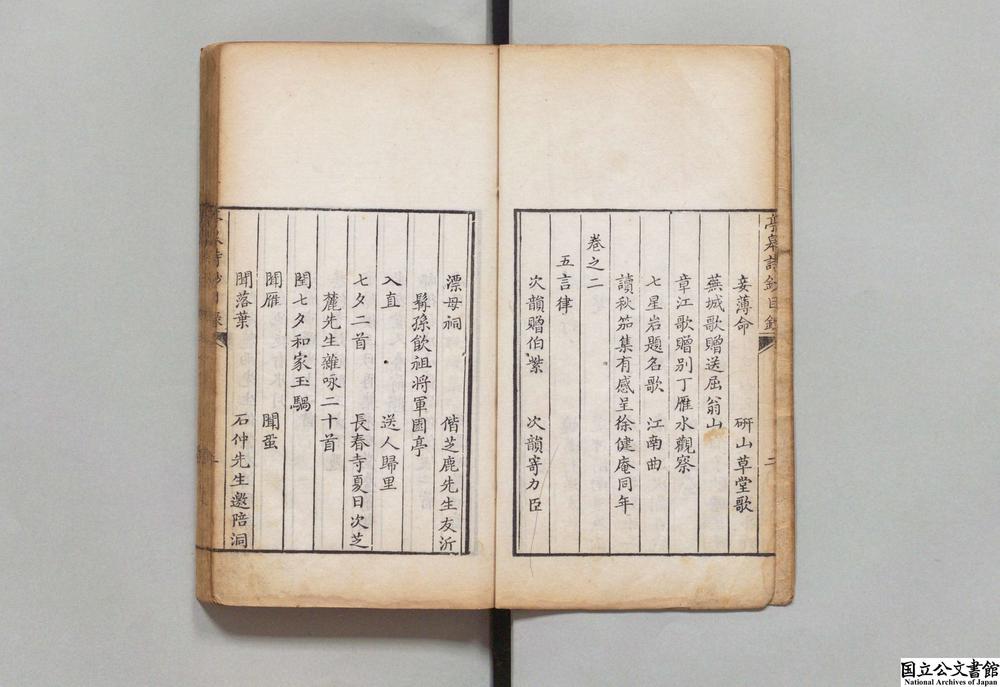 亭皋詩鈔目錄
二
妾薄命　研山草堂歌
蕪城歌贈送屈翁山
章江歌贈別丁雁水觀察
七星岩題名歌　江南曲
讀秋笳集有感呈徐健庵同年
卷之二
五言律
次韻贈伯紫　次韻寄力臣
漂母祠　偕芝鹿先生友沂
髯孫飲祖將軍園亭
入直　送人歸里
七夕二首　長春寺夏日次芝
麓先生雜咏二十首
閏七夕和家玉騧
聞雁　聞蛩
聞落葉　石仲先生邀陪洞
国立公文書館
National Archives of Japan